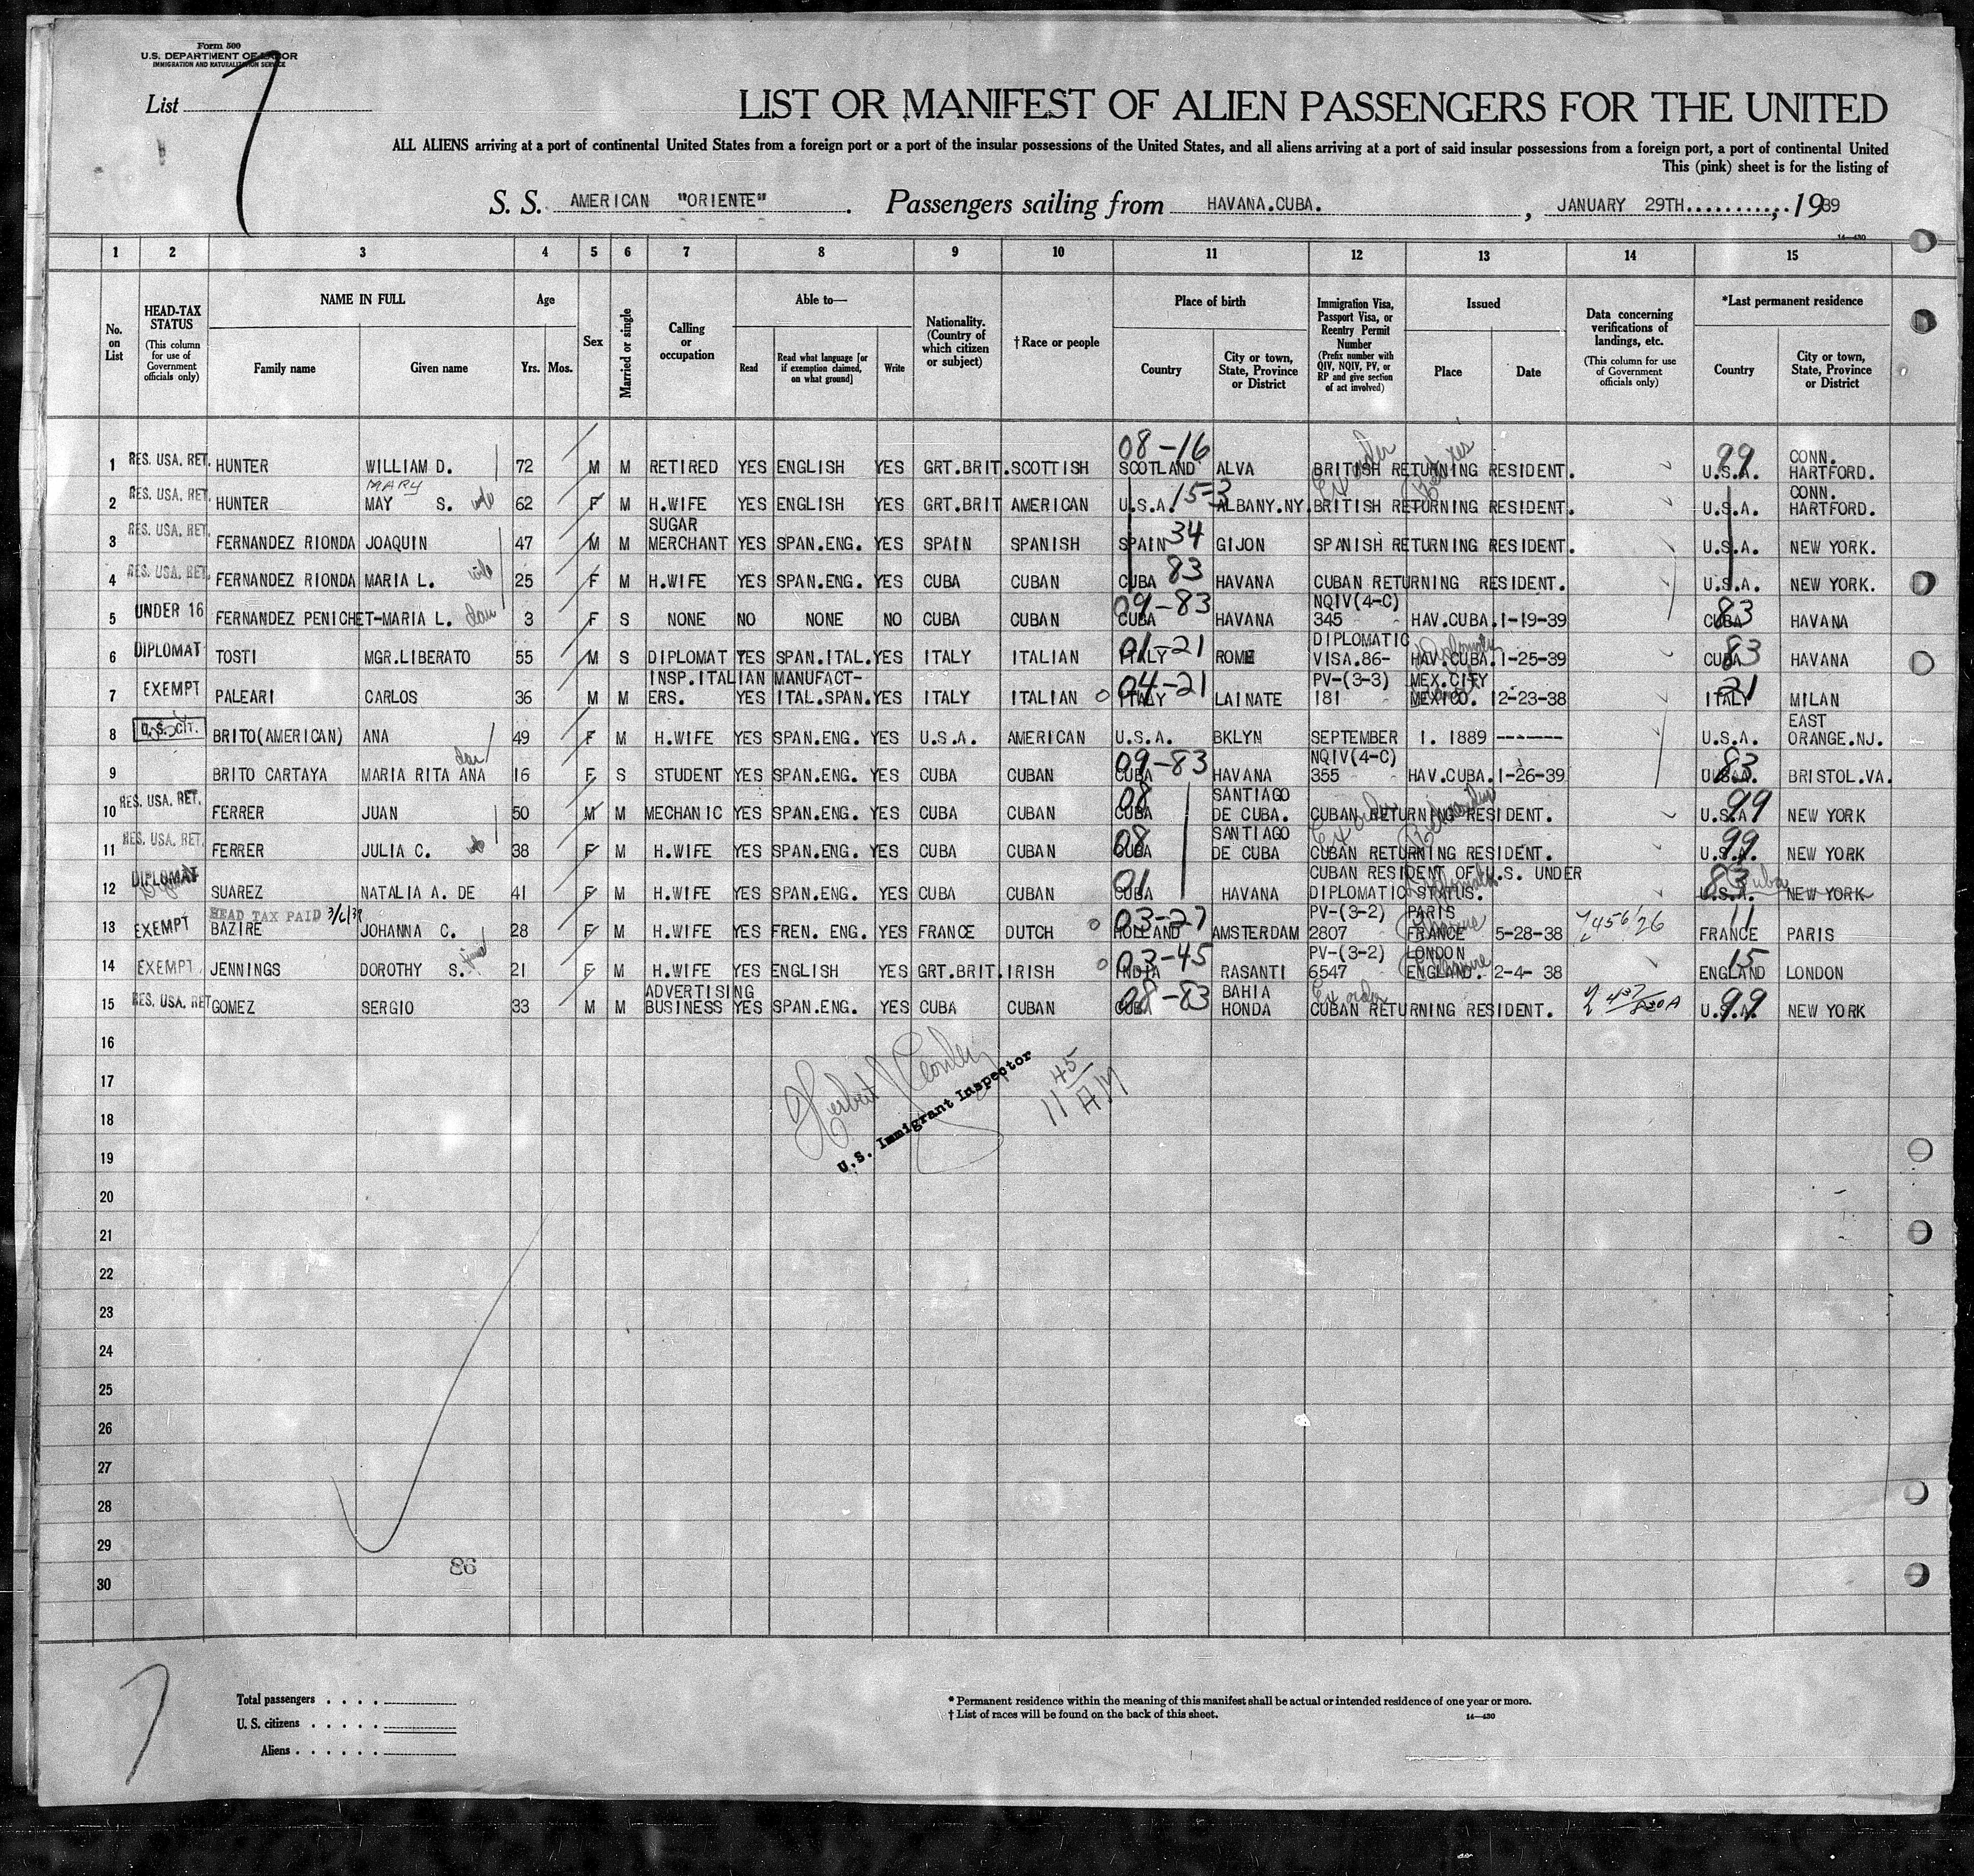 Form 500
U.S. DEPARTMENT OF LABOR
IMMIGRATION AND NATURALIZATION SERVICE
List 7
LIST OR MANIFEST OF ALIEN PASSENGERS FOR THE UNITED
ALL ALIENS arriving at a port of continental United States from a foreign port or a port of the insular possessions of the United States, and all aliens arriving at a port of said insular possessions from a foreign port, a port of continental United
This (pink) sheet is for the listing of
S. S. AMERICAN "ORIENTE". Passengers sailing from HAVANA.CUBA. , JANUARY 29TH..........,.1939
14—430
1 2 3 4 5 6 7 8 9 10 11 12 13 14 15
No. on List
HEAD-TAX STATUS (This column for use of Government officials only)
NAME IN FULL Family name Given name
Age Yrs. Mos.
Sex
Married or single
Calling or occupation
Able to— Read Read what language [or if exemption claimed, on what ground] Write
Nationality. (Country of which citizen or subject)
†Race or people
Place of birth Country City or town, State, Province or District
Immigration Visa, Passport Visa, or Reentry Permit Number (Prefix number with QIV, NQIV, PV, or RP and give section of act involved)
Issued Place Date
Data concerning verifications of landings, etc. (This column for use of Government officials only)
*Last permanent residence Country City or town, State, Province or District
1 RES. USA. RET. HUNTER WILLIAM D. 72 M M RETIRED YES ENGLISH YES GRT.BRIT. SCOTTISH 08-16 SCOTLAND ALVA BRITISH RETURNING RESIDENT. 99 U.S.A. CONN. HARTFORD.
2 RES. USA. RET. HUNTER MARY MAY S. 62 F M H.WIFE YES ENGLISH YES GRT.BRIT AMERICAN U.S.A. 15-3 ALBANY.NY. BRITISH RETURNING RESIDENT. U.S.A. CONN. HARTFORD.
3 RES. USA. RET. FERNANDEZ RIONDA JOAQUIN 47 M M SUGAR MERCHANT YES SPAN.ENG. YES SPAIN SPANISH SPAIN 34 GIJON SPANISH RETURNING RESIDENT. U.S.A. NEW YORK.
4 RES. USA. RET. FERNANDEZ RIONDA MARIA L. 25 F M H.WIFE YES SPAN.ENG. YES CUBA CUBAN CUBA 83 HAVANA CUBAN RETURNING RESIDENT. U.S.A. NEW YORK.
5 UNDER 16 FERNANDEZ PENICHET-MARIA L. dau 3 F S NONE NO NONE NO CUBA CUBAN 09-83 CUBA HAVANA NQIV(4-C) 345 HAV.CUBA. 1-19-39 83 CUBA HAVANA
6 DIPLOMAT TOSTI MGR.LIBERATO 55 M S DIPLOMAT YES SPAN.ITAL. YES ITALY ITALIAN 01-21 ITALY ROME DIPLOMATIC VISA.86- HAV.CUBA. 1-25-39 83 CUBA HAVANA
7 EXEMPT PALEARI CARLOS 36 M M INSP.ITALIAN MANUFACT-ERS. YES ITAL.SPAN. YES ITALY ITALIAN 04-21 ITALY LAINATE PV-(3-3) 181 MEX.CITY MEXICO. 12-23-38 21 ITALY MILAN
8 U.S. CIT. BRITO(AMERICAN) ANA 49 F M H.WIFE YES SPAN.ENG. YES U.S.A. AMERICAN U.S.A. BKLYN SEPTEMBER 1. 1889 ------ U.S.A. EAST ORANGE.NJ.
9 BRITO CARTAYA MARIA RITA ANA dau 16 F S STUDENT YES SPAN.ENG. YES CUBA CUBAN 09-83 CUBA HAVANA NQIV(4-C) 355 HAV.CUBA. 1-26-39 83 BRISTOL.VA.
10 RES. USA. RET. FERRER JUAN 50 M M MECHANIC YES SPAN.ENG. YES CUBA CUBAN 08 CUBA SANTIAGO DE CUBA. CUBAN RETURNING RESIDENT. 99 U.S.A NEW YORK
11 RES. USA. RET. FERRER JULIA C. 38 F M H.WIFE YES SPAN.ENG. YES CUBA CUBAN 08 CUBA SANTIAGO DE CUBA CUBAN RETURNING RESIDENT. 99 U.S.A. NEW YORK
12 DIPLOMAT SUAREZ NATALIA A. DE 41 F M H.WIFE YES SPAN.ENG. YES CUBA CUBAN 01 CUBA HAVANA CUBAN RESIDENT OF U.S. UNDER DIPLOMATIC STATUS. 83 Cuba U.S.A. NEW YORK
13 EXEMPT HEAD TAX PAID 3/6/39 BAZIRE JOHANNA C. 28 F M H.WIFE YES FREN. ENG. YES FRANCE DUTCH 03-27 HOLLAND AMSTERDAM PV-(3-2) 2807 PARIS FRANCE 5-28-38 11 FRANCE PARIS
14 EXEMPT JENNINGS DOROTHY S. 21 F M H.WIFE YES ENGLISH YES GRT.BRIT. IRISH 03-45 INDIA RASANTI PV-(3-2) 6547 LONDON ENGLAND. 2-4- 38 15 ENGLAND LONDON
15 RES. USA. RET GOMEZ SERGIO 33 M M ADVERTISING BUSINESS YES SPAN.ENG. YES CUBA CUBAN 08-83 CUBA BAHIA HONDA Ex order CUBAN RETURNING RESIDENT. 99 U.S.A. NEW YORK
16
17
18
U.S. Immigrant Inspector
11 45 AM
19
20
21
22
23
24
25
26
27
28
29
30
86
7
Total passengers . . . .
U. S. citizens . . . . .
Aliens . . . . . .
* Permanent residence within the meaning of this manifest shall be actual or intended residence of one year or more.
† List of races will be found on the back of this sheet.
14—430